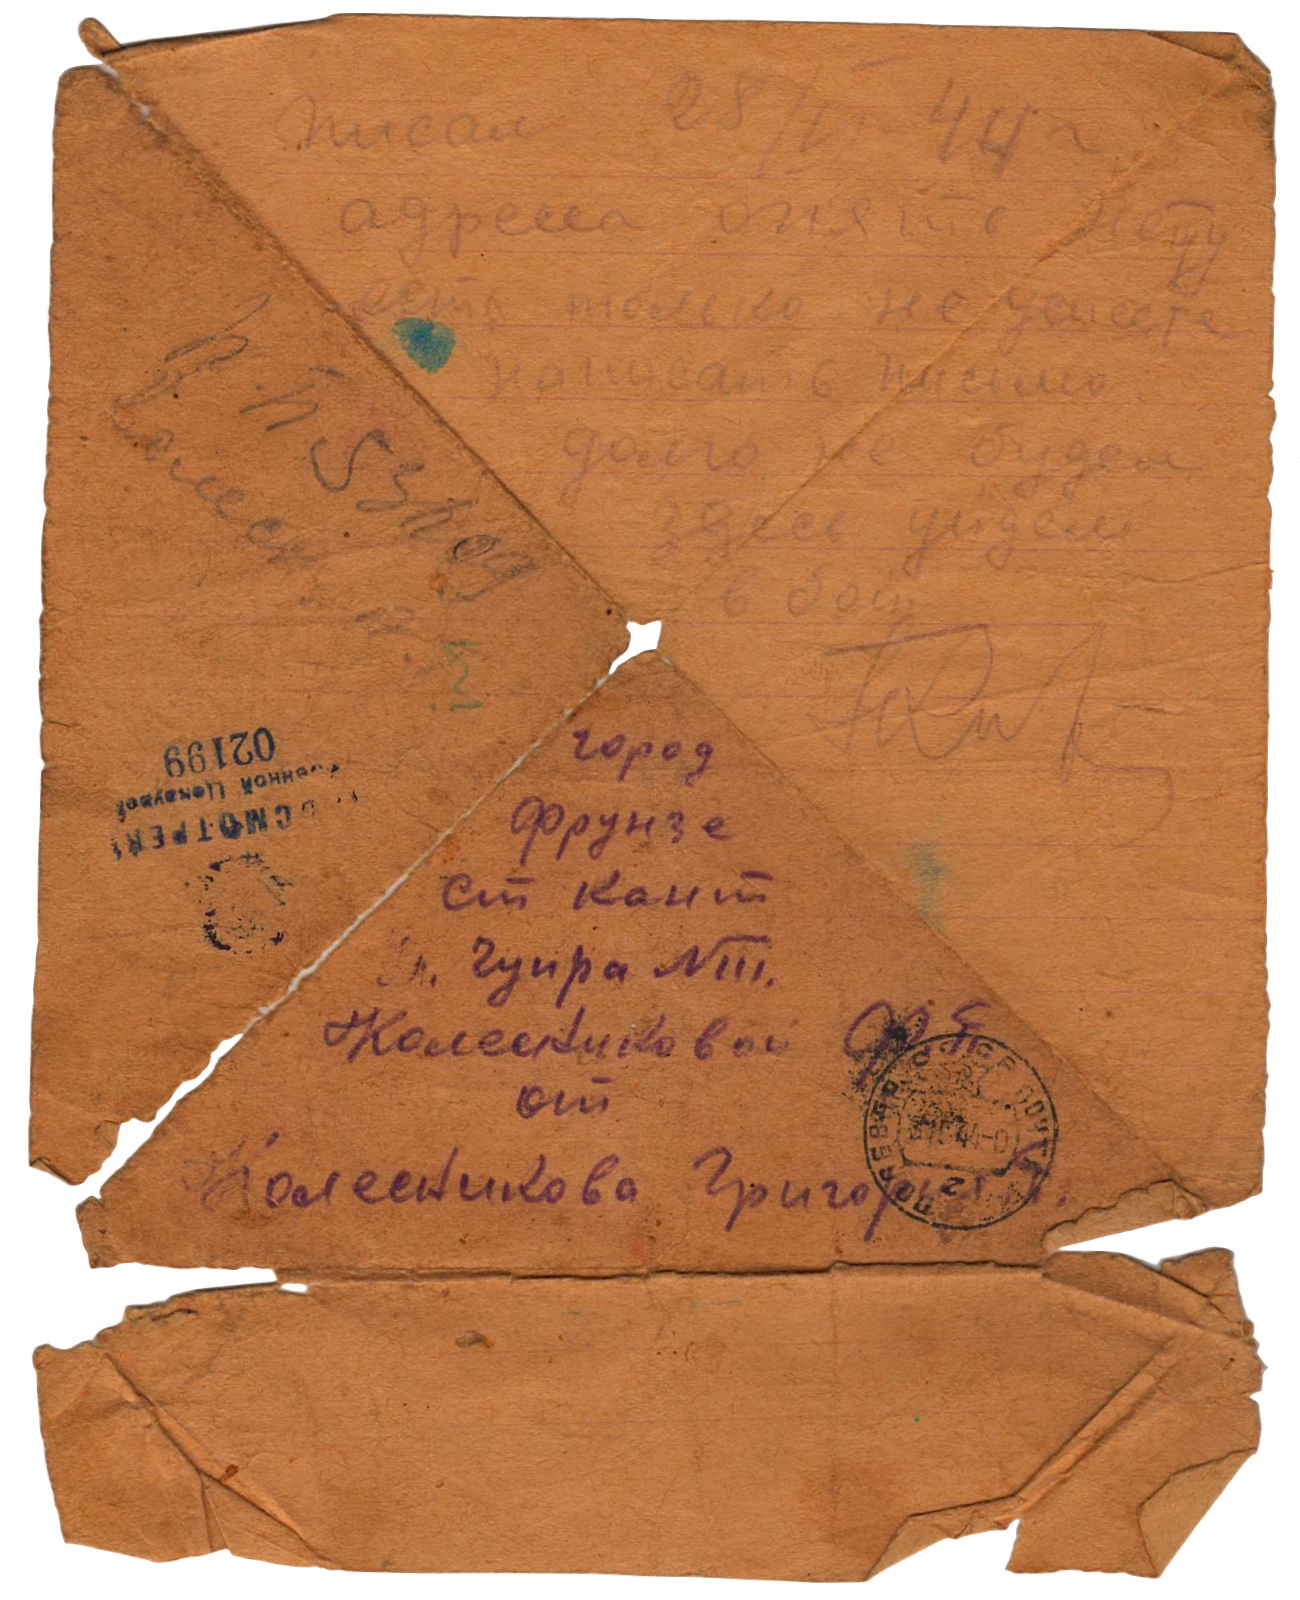 писал 28/I- 44 г
адреса опять нету
есть только не успеете
написать письмо
долго не будем
здесь уйдем
в бой
П. П 53709
Колесников
город
Фрунзе
ст Кант
Чуйра №111.
Колесниковой
от
Колесникова Григорья
ПРОСМОТРЕНО
Военной Цензурой
02199
СССР ПОЧТА
44